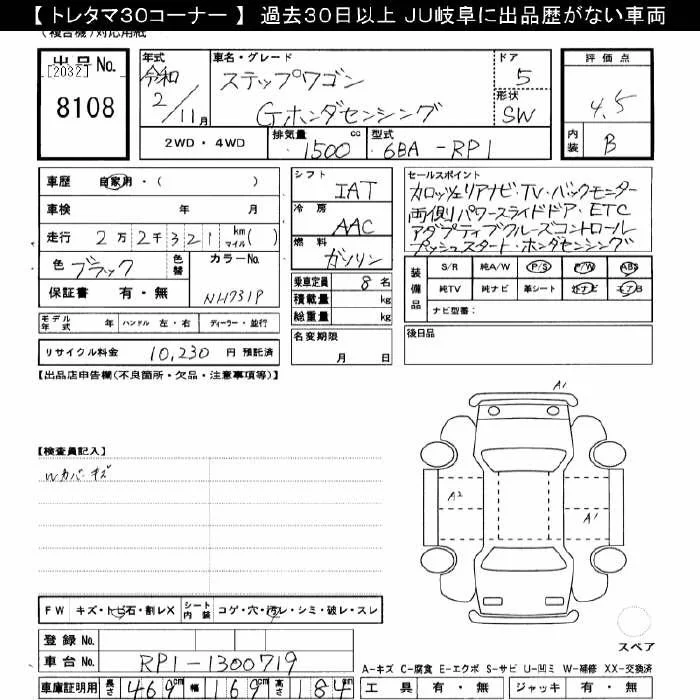 【 トレタマ30コーナー 】 過去30日以上 JU岐阜に出品歴がない車両
(複合機)対応用紙
出品No.
[2032]
8108
年式
令和
2/11月
車名・グレード
ステップワゴン
Gホンダセンシング
ドア
5
形状
SW
評価点
4.5
内装
B
2WD・4WD
排気量
1500 cc
型式
6BA-RP1
車歴 自家用・( )
車検 年 月
走行 2万2千321 km マイル( )
色 ブラック
色替
カラーNo.
NH731P
保証書 有・無
シフト
IAT
冷房
AAC
燃料
ガソリン
乗車定員 8 名
積載量 kg
総重量 kg
名変期限
月 日
セールスポイント
カロッツェリアナビ・TV・バックモニター
両側パワースライドドア・ETC
アダプティブクルーズコントロール
プッシュスタート・ホンダセンシング
装備品
S/R 純A/W P/S P/W ABS
純TV 純ナビ 革シート 社ナビ エアB
ナビ型番:
後日品
モデル年式 年 ハンドル 左・右 ディーラー・並行
リサイクル料金 10,230 円 預託済
【出品店申告欄(不良箇所・欠品・注意事項等)】
【検査員記入】
Wカバーキズ
A1
A2
A1
スペア
FW キズ・トビ石・割レX シート内装 コゲ・穴・汚レ・シミ・破レ・スレ
登録No.
車台No. RP1-1300719
車庫証明用 長さ 469cm 幅 169cm 高さ 184cm
A-キズ C-腐食 E-エクボ S-サビ U-凹ミ W-補修 XX-交換済
工具 有・無 ジャッキ 有・無